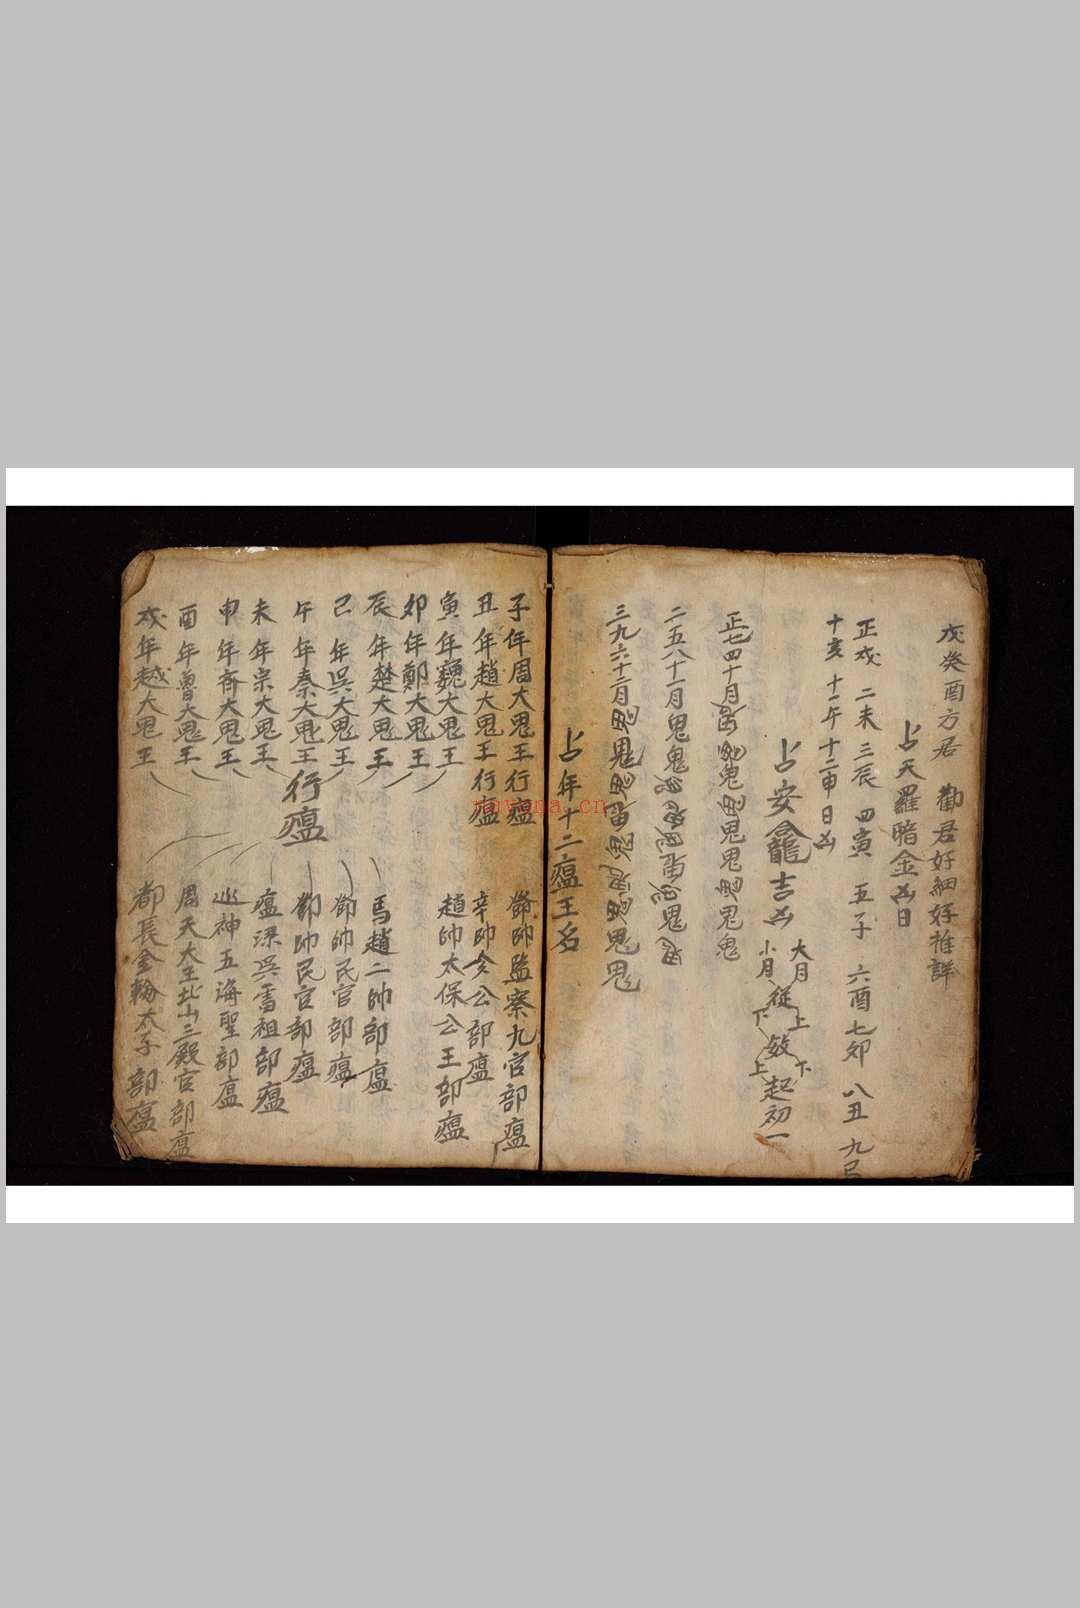 戊癸酉方居 勸君好細好推詳
占天羅暗金凶日
正戌 二未 三辰 四寅 五子 六酉 七卯 八丑 九巳
十亥 十一午 十二申日凶
占安龕吉凶
大月從上 下
小月 下 上
數起初一
正七四十月
二五八十一月鬼鬼
三九六十二月
占年十二瘟王名
子年周大鬼王行瘟 鄧帥監察九官部瘟
丑年趙大鬼王行瘟 辛帥令公部瘟
寅年魏大鬼王 趙帥太保公王部瘟
卯年鄭大鬼王
辰年楚大鬼王 馬趙二帥部瘟
巳年吳大鬼王 鄧帥民官部瘟
行瘟
午年秦大鬼王 鄧帥民官部瘟
未年宗大鬼王 瘟梁吳雷祖部瘟
申年齊大鬼王 巡神五海聖部瘟
酉年魯大鬼王 周天大王北山三殿官部瘟
戌年越大鬼王 都長金輪太子部瘟
nayona.cn